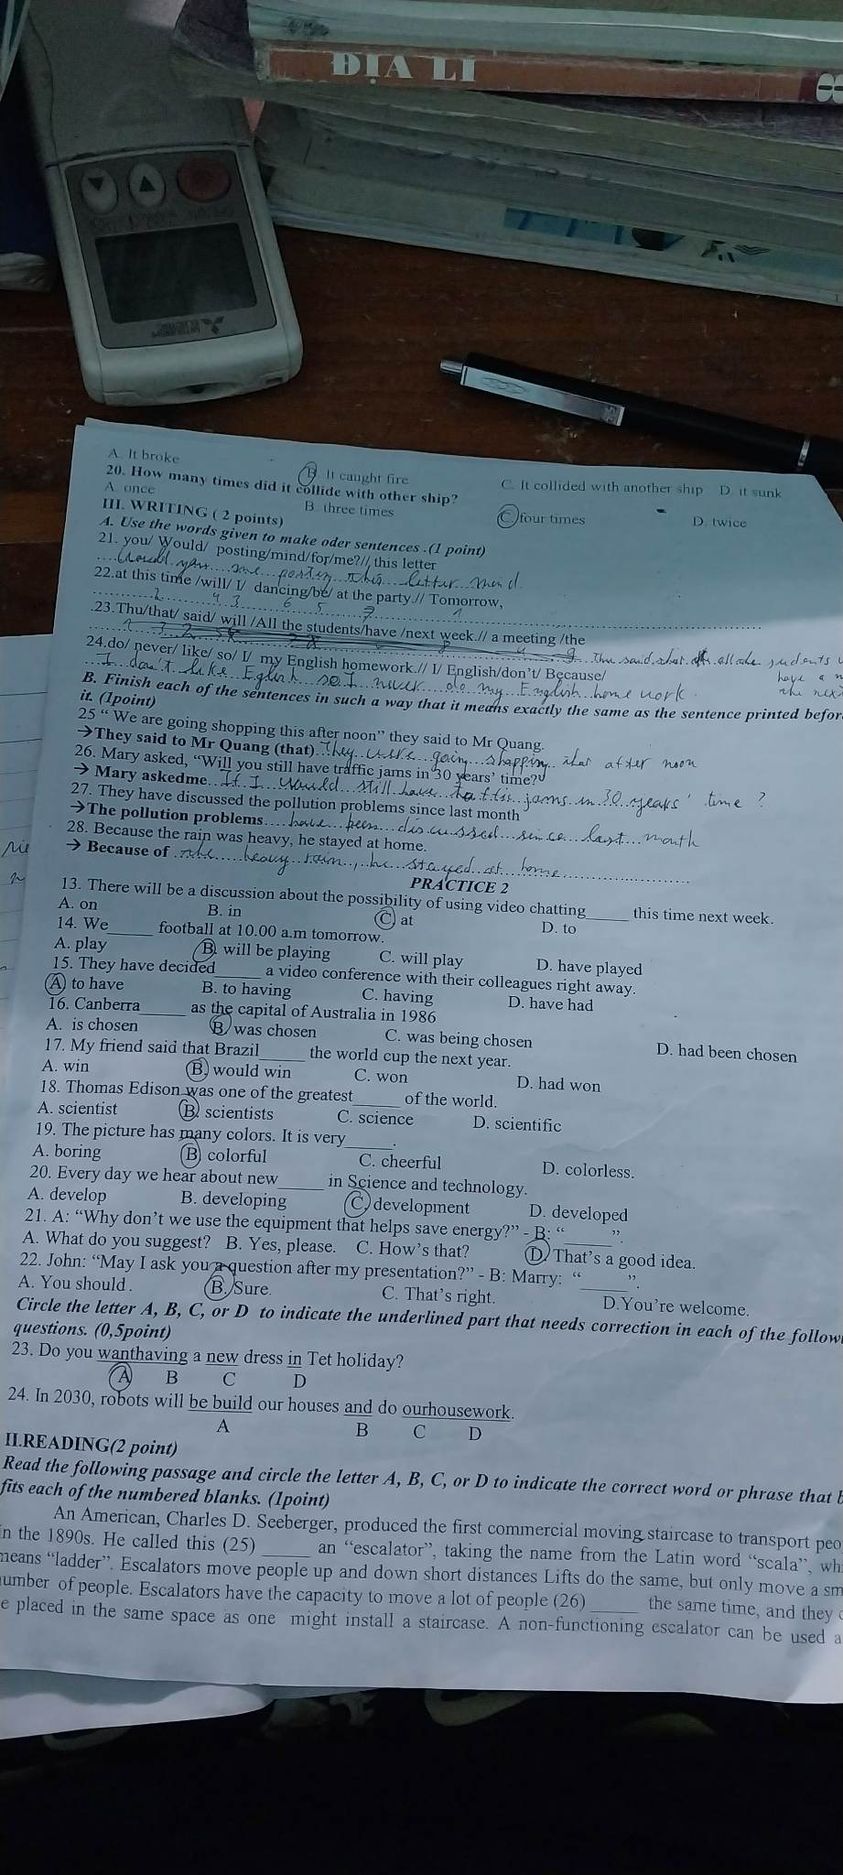 ĐỊA LÍ 8
A. It broke B. It caught fire C. It collided with another ship D. it sunk
20. How many times did it collide with other ship?
A. once B. three times C. four times D. twice
III. WRITING ( 2 points)
A. Use the words given to make oder sentences .(1 point)
21. you/ Would/ posting/mind/for/me?// this letter
Would you me posting this letter mend
22.at this time /will/ I/ dancing/be/ at the party.// Tomorrow,
2 4 3 6 5 7 1
23.Thu/that/ said/ will /All the students/have /next week.// a meeting /the
Thu said that all the
24.do/ never/ like/ so/ I/ my English homework.// I/ English/don't/ Because/
have a
I don't like English so I never do my English home work.
the next
B. Finish each of the sentences in such a way that it means exactly the same as the sentence printed before
it. (1point)
25 “ We are going shopping this after noon” they said to Mr Quang.
→They said to Mr Quang (that) They were going shopping that after noon
26. Mary asked, “Will you still have traffic jams in 30 years’ time?”
→ Mary askedme If I would still have traffic jams in 30 years' time ?
27. They have discussed the pollution problems since last month
→The pollution problems have been discussed since last month
28. Because the rain was heavy, he stayed at home.
→ Because of the heavy rain, he stayed at home
PRACTICE 2
13. There will be a discussion about the possibility of using video chatting_____ this time next week.
A. on B. in C. at D. to
14. We_____ football at 10.00 a.m tomorrow.
A. play B. will be playing C. will play D. have played
15. They have decided_____ a video conference with their colleagues right away.
A) to have B. to having C. having D. have had
16. Canberra_____ as the capital of Australia in 1986
A. is chosen B. was chosen C. was being chosen D. had been chosen
17. My friend said that Brazil_____ the world cup the next year.
A. win B. would win C. won D. had won
18. Thomas Edison was one of the greatest_____ of the world.
A. scientist B. scientists C. science D. scientific
19. The picture has many colors. It is very_____.
A. boring B. colorful C. cheerful D. colorless.
20. Every day we hear about new_____ in Science and technology.
A. develop B. developing C. development D. developed
21. A: “Why don’t we use the equipment that helps save energy?” - B: “_____”.
A. What do you suggest? B. Yes, please. C. How’s that? D. That’s a good idea.
22. John: “May I ask you a question after my presentation?” - B: Marry: “_____”.
A. You should. B. Sure. C. That’s right. D.You’re welcome.
Circle the letter A, B, C, or D to indicate the underlined part that needs correction in each of the follow
questions. (0,5point)
23. Do you wanthaving a new dress in Tet holiday?
A B C D
24. In 2030, robots will be build our houses and do ourhousework.
A B C D
II.READING(2 point)
Read the following passage and circle the letter A, B, C, or D to indicate the correct word or phrase that b
fits each of the numbered blanks. (1point)
An American, Charles D. Seeberger, produced the first commercial moving staircase to transport peo
in the 1890s. He called this (25) _____ an “escalator”, taking the name from the Latin word “scala”, wh
means “ladder”. Escalators move people up and down short distances Lifts do the same, but only move a sm
number of people. Escalators have the capacity to move a lot of people (26) _____ the same time, and they c
e placed in the same space as one might install a staircase. A non-functioning escalator can be used a